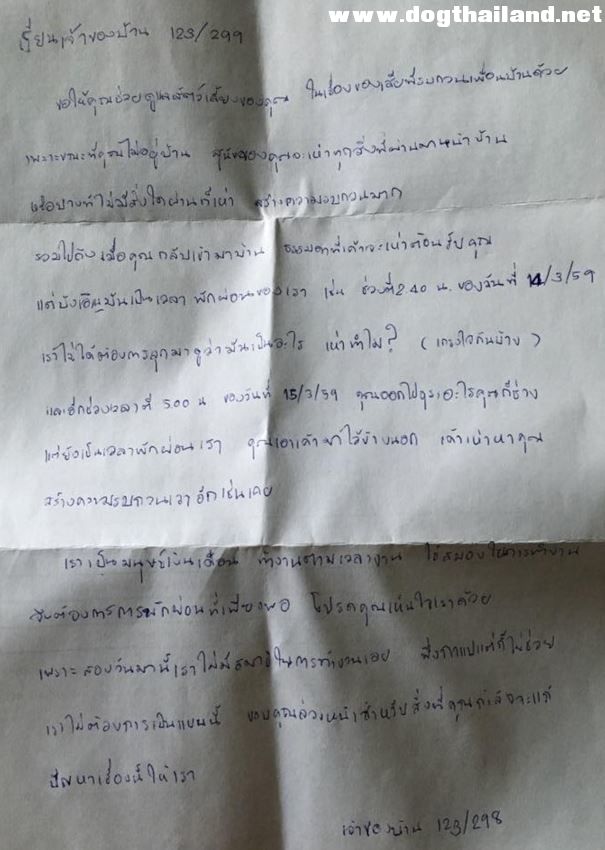 www.dogthailand.net
เรียนเจ้าของบ้าน 123/299
ขอให้คุณช่วยดูแลสัตว์เลี้ยงของคุณ ในเรื่องของเสียงรบกวนเพื่อนบ้านด้วย
เพราะขณะที่คุณไม่อยู่บ้าน สุนัขของคุณจะเห่าทุกสิ่งที่ผ่านมาหน้าบ้าน
หรือบางทีไม่มีสิ่งใดผ่านก็เห่า สร้างความรบกวนมาก
รวมไปถึงเมื่อคุณกลับเข้ามาบ้าน ธรรมดาที่เค้าจะเห่าต้อนรับคุณ
แต่บังเอิญมันเป็นเวลาพักผ่อนของเรา เช่น ช่วงตี 2.40 น. ของวันที่ 14/3/59
เราไม่ได้ต้องการลุกมาดูว่ามันเป็นอะไร เห่าทำไม? (เกรงใจกันบ้าง)
และอีกช่วงเวลาตี 5.00 น ของวันที่ 15/3/59 คุณออกไปธุระอะไรคุณก็ช่าง
แต่ยังเป็นเวลาพักผ่อนเรา คุณเอาเค้ามาไว้ข้างนอก เค้าเห่าหาคุณ
สร้างความรบกวนเราอีกเช่นเคย
เราเป็นมนุษย์เงินเดือน ทำงานตามเวลางาน ใช้สมองในการทำงาน
จึงต้องการการพักผ่อนที่เพียงพอ โปรดคุณเห็นใจเราด้วย
เพราะสองวันมานี้เราไม่มีสมาธิในการทำงานเลย พึ่งกาแฟแต่ก็ไม่ช่วย
เราไม่ต้องการเป็นแบบนี้ ขอบคุณล่วงหน้าสำหรับสิ่งที่คุณกำลังจะแก้
ปัญหาเรื่องนี้ให้เรา
เจ้าของบ้าน 123/298